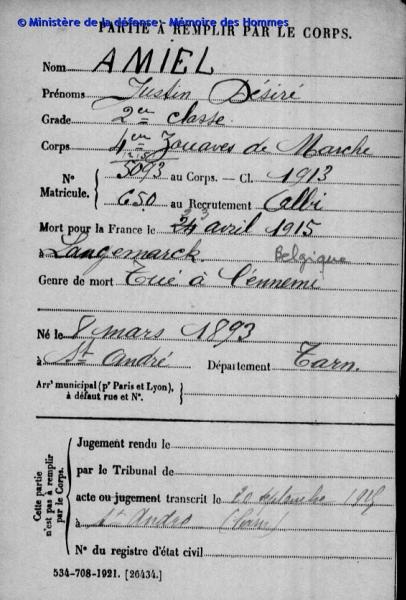 © Ministère de la défense - Mémoire des Hommes
PARTIE À REMPLIR PAR LE CORPS.
Nom AMIEL
Prénoms Justin Désiré
Grade 2e classe
Corps 4e Zouaves de Marche
N° Matricule. 5093 au Corps. — Cl. 1913
650 au Recrutement Albi
Mort pour la France le 23 avril 1915
à Langemarck. Belgique
Genre de mort Tué à l'ennemi
Né le 8 mars 1893
à St André Département Tarn.
Arrt municipal (pr Paris et Lyon), à défaut rue et N°.
Cette partie n'est pas à remplir par le Corps.
Jugement rendu le
par le Tribunal de
acte ou jugement transcrit le 20 septembre
à St André (Tarn)
N° du registre d'état civil
534-708-1921. [26434.]